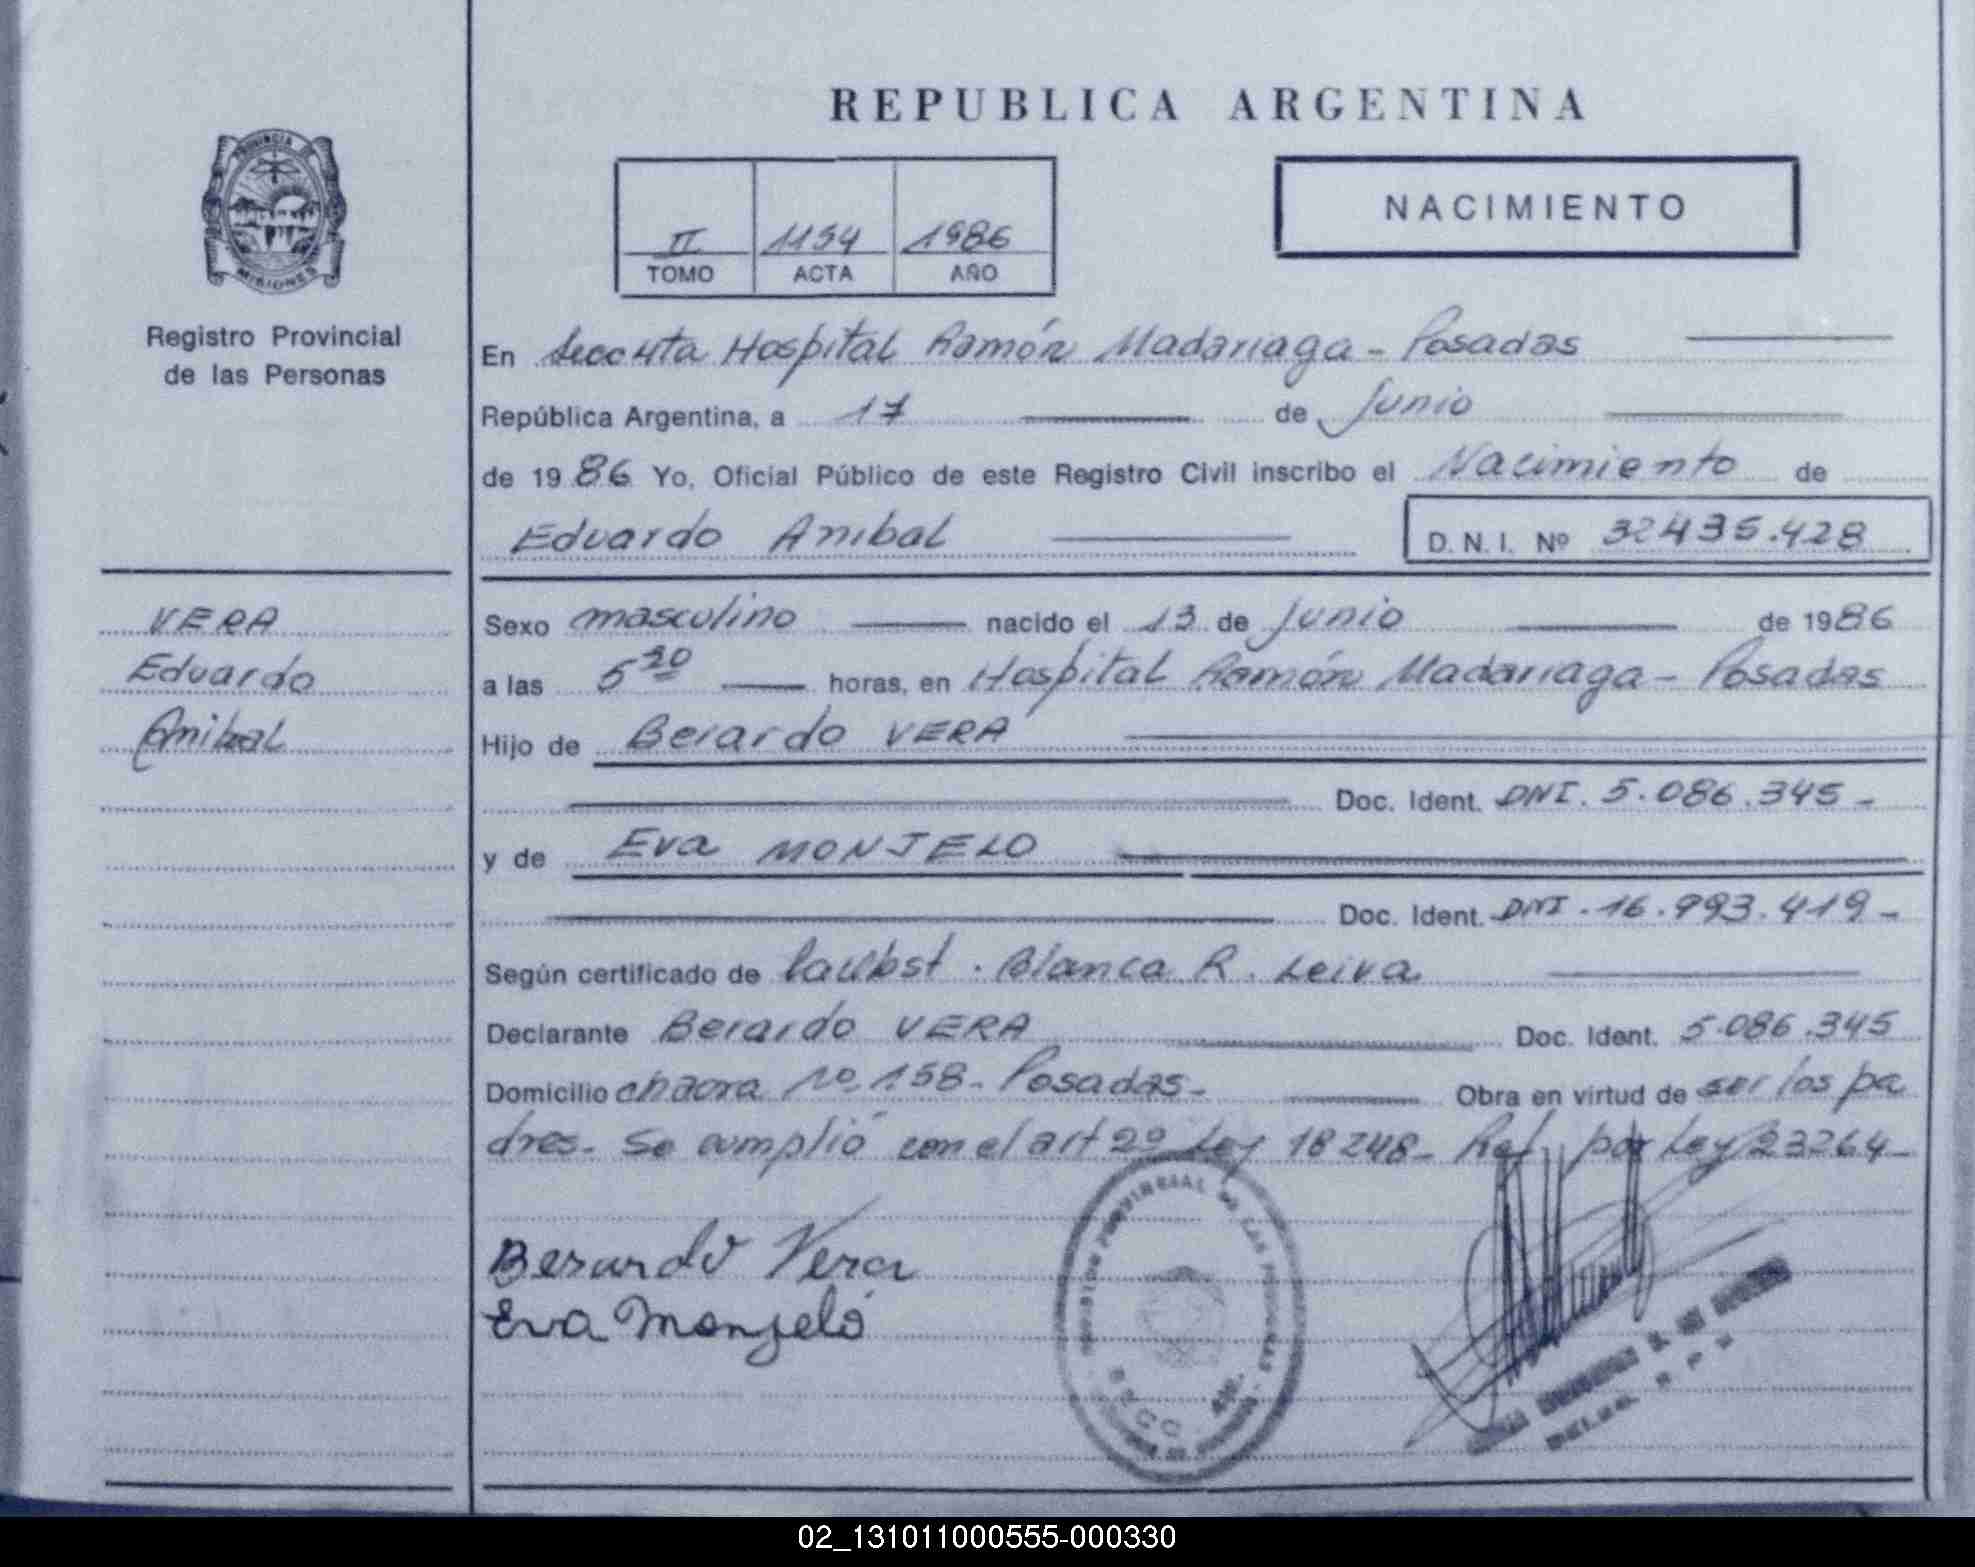 REPUBLICA ARGENTINA
PROVINCIA DE
MISIONES
Registro Provincial
de las Personas
NACIMIENTO
II 1194 1986
TOMO ACTA AÑO
En Secc 4ta Hospital Ramón Madariaga - Posadas
República Argentina, a 17 de Junio
de 1986 Yo, Oficial Público de este Registro Civil inscribo el Nacimiento de
Eduardo Anibal D. N. I. Nº 32435.428
VERA
Eduardo
Anibal
Sexo masculino nacido el 13 de Junio de 1986
a las 5 20 horas, en Hospital Ramón Madariaga - Posadas
Hijo de Berardo VERA
Doc. Ident. DNI. 5.086.345-
y de Eva MONJELO
Doc. Ident. DNI. 16.993.419-
Según certificado de Blanca R. Leiva
Declarante Berardo VERA Doc. Ident. 5.086.345
Domicilio chacra nº 158- Posadas- Obra en virtud de ser los pa
dres- Se cumplió con el art 2º Ley 18248- Ref. por Ley 23264-
Berardo Vera
Eva Monjeló
PROVINCIAL DE LAS PERSONAS
02_131011000555-000330